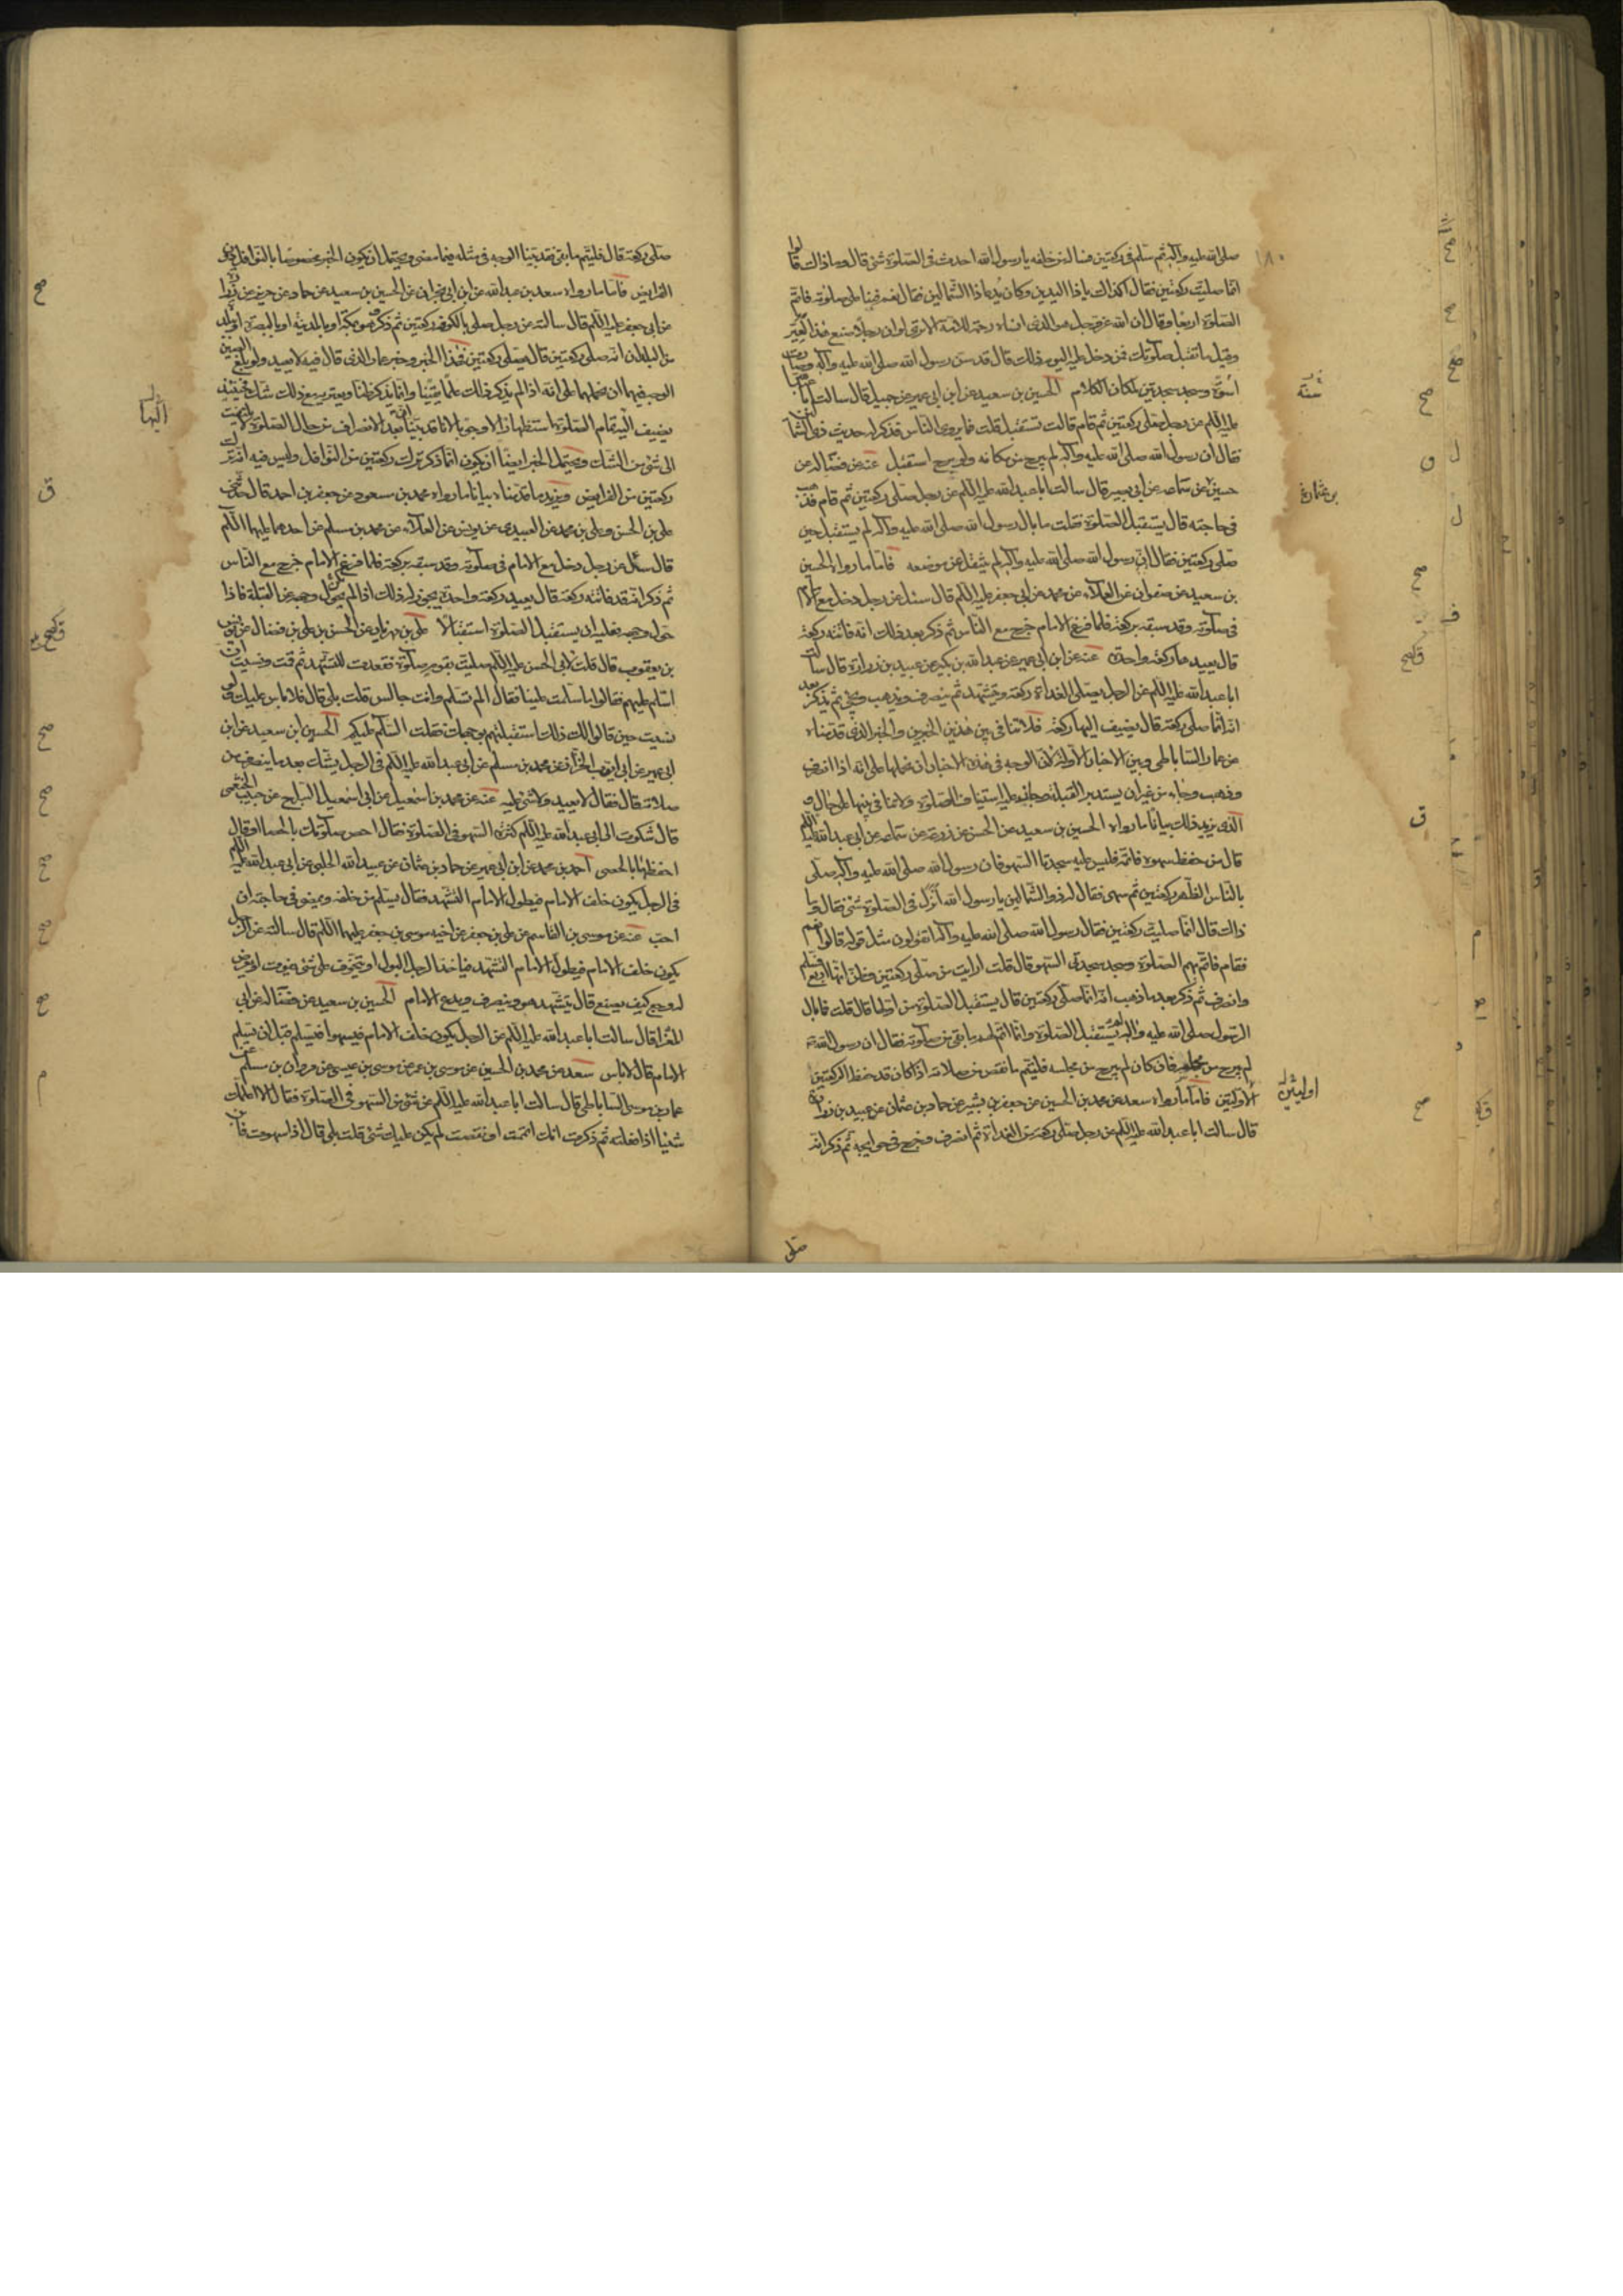 صلى الله عليه وآله ثم سلم فى ركعتين فساله من خلفه يا رسول الله احدث فى الصلوة شئ قال وما ذاك قالوا
انما صليت ركعتين فقال اكذاك يا ذا اليدين وكان يدعا ذا الشمالين فقال نعم فبنا على صلوته فاتم
الصلوة اربعا وقال ان الله عز وجل هو الذى انساه رحمة للامة الا ترى لو ان رجلا صنع هذا لعير
وقيل ما تقبل صلوتك فمن دخل عليه اليوم ذلك قال قد سن رسول الله صلى الله عليه وآله وصارت
اسوة وسجد سجدتين لمكان الكلام الحسين بن سعيد عن ابن ابى عمير عن جميل قال سالت ابا عبد الله
عليه السلم عن رجل صلى ركعتين ثم قام قال يستقبل قلت فما يروى الناس فذكر له حديث ذى الشمالين
فقال ان رسول الله صلى الله عليه وآله لم يبرح من مكانه ولو برح استقبل عنه عن فضالة عن
حسين عن سماعه عن ابى بصير قال سالت ابا عبد الله عليه السلم عن رجل صلى ركعتين ثم قام فذهب
فى حاجته قال يستقبل الصلوة فقلت ما بال رسول الله صلى الله عليه وآله لم يستقبل حين
صلى ركعتين فقال ان رسول الله صلى الله عليه وآله لم ينفتل عن موضعه فاما ما رواه الحسين
بن سعيد عن صفوان عن العلاء عن محمد عن ابى جعفر عليه السلم قال سئل عن رجل دخل مع الامام
فى صلوته وقد سبقه بركعة فلما فرغ الامام خرج مع الناس ثم ذكر بعد ذلك انه فاتته ركعة
قال يعيدها ركعة واحدة عنه عن ابن ابى عمير عن عبد الله بن بكير عن عبيد بن زرارة قال سالت
ابا عبد الله عليه السلم عن الرجل يصلى الغداة ركعة ويتشهد ثم ينصرف ويذهب ويجئ ثم يذكر بعد
انه انما صلى ركعة قال يضيف اليها ركعة فلا تنافى بين هذين الخبرين والخبر الذى قدمناه
عن عمار الساباطى وبين الاخبار الاولة لان الوجه فى هذه الاخبار ان نحملها على انه اذا انصرف
وذهب وجاء من غير ان يستدبر القبلة استيناف الصلوة ولا تنافى بينها على حال و
الذى يزيد ذلك بيانا ما رواه الحسين بن سعيد عن الحسن عن زرعة عن سماعه عن ابى عبد الله عليه السلم
قال من حفظ سهوه فاتمه فليس عليه سجدتا السهو فان رسول الله صلى الله عليه وآله صلى
بالناس الظهر ركعتين ثم سهى فقال له ذو الشمالين يا رسول الله انزل فى الصلوة شئ فقال وما
ذاك قال انما صليت ركعتين فقال رسول الله صلى الله عليه وآله اتقولون مثل قوله قالوا نعم
فقام فاتم بهم الصلوة وسجد سجدتى السهو قال قلت ارايت من صلى ركعتين وظن انها اربع فسلم
وانصرف ثم ذكر بعد ما ذهب انه انما صلى ركعتين قال يستقبل الصلوة من اولها قال قلت فما بال
الرسول صلى الله عليه وآله لم يستقبل الصلوة وانما اتم لهم ما بقى من صلوته فقال ان رسول الله
لم يبرح من مجلسه فان كان لم يبرح من مجلسه فليتم ما نقص من صلاته اذا كان قد حفظ الركعتين
الاولتين فاما ما رواه سعد عن محمد بن الحسين عن جعفر بن بشير عن حماد بن عثمان عن عبيد بن زرارة
قال سالت ابا عبد الله عليه السلم عن رجل صلى ركعة من الغداة ثم انصرف وخرج فى حوايجه ثم ذكر انه
صلى
صلى ركعة قال فليتم ما بقى فقد بينا الوجه فى مثله فيما مضى ويحتمل ان يكون الخبر مخصوصا بالنوافل دون
الفرايض فاما ما رواه سعد بن عبد الله عن ابن ابى نجران عن الحسين بن سعيد عن حماد عن حريز عن زرارة
عن ابى جعفر عليه السلم قال سالته عن رجل صلى بالكوفه ركعتين ثم ذكر وهو بمكة او بالمدينة او بالبصرة او ببلدة
من البلدان انه صلى ركعتين قال يصلى ركعتين فهذا الخبر وخبر عمار الذى قال فيه لا يعيد ولو بلغ الصين
الوجه فيهما ان نحملهما على انه اذا لم يذكر ذلك علما يقينا وانما يذكر ظنا ويعتريه مع ذلك شك فحينئذ
يضيف اليه تمام الصلوة استظهارا لا وجوبا لانا قد بينا انه بعد الانصراف من حال الصلوة لا يلتفت
الى شئ من الشك ويحتمل الخبر ايضا ان يكون انما ذكر ترك ركعتين من النوافل وليس فيه انه ترك
ركعتين من الفرايض ويزيد ما قدمناه بيانا ما رواه محمد بن مسعود عن جعفر بن احمد قال حدثنى
على بن الحسن وعلى بن محمد عن العبيدى عن يونس عن العلاء عن محمد بن مسلم عن احدهما عليهما السلم
قال سئل عن رجل دخل مع الامام فى صلوته وقد سبقه بركعة فلما فرغ الامام خرج مع الناس
ثم ذكر انه قد فاتته ركعة قال يعيد ركعة واحدة يجوز له ذلك اذا لم يحول وجهه عن القبلة فاذا
حول وجهه فعليه ان يستقبل الصلوة استقبالا على بن مهزيار عن الحسن بن على بن فضال عن يونس
بن يعقوب قال قلت لابى الحسن عليه السلم صليت بقوم صلوة فقعدت للتشهد ثم قمت ونسيت ان
اسلم عليهم فقالوا ما سلمت علينا فقال الم تسلم وانت جالس قلت بلى قال فلا باس عليك ولو
نسيت حين قالوا لك ذلك استقبلتهم بوجهك فقلت السلم عليكم الحسين بن سعيد عن ابن
ابى عمير عن ابى ايوب الخزاز عن محمد بن مسلم عن ابى عبد الله عليه السلم فى الرجل يشك بعد ما ينصرف من
صلاته قال فقال لا يعيد ولا شئ عليه عنه عن محمد بن اسمعيل عن ابى اسمعيل السراج عن حبيب الخثعمى
قال شكوت الى ابى عبد الله عليه السلم كثرة السهو فى الصلوة فقال احص صلوتك بالحصا او قال
احفظها بالحصى احمد بن محمد عن ابن ابى عمير عن حماد بن عثمان عن عبيد الله الحلبى عن ابى عبد الله عليه السلم
فى الرجل يكون خلف الامام فيطول الامام التشهد فقال يسلم من خلفه ويمضى فى حاجته ان
احب عنه عن موسى بن القاسم عن على بن جعفر عن اخيه موسى بن جعفر عليهما السلم قال سالته عن الرجل
يكون خلف الامام فيطول الامام التشهد فياخذ الرجل البول او يتخوف على شئ يفوت او يعرض
له وجع كيف يصنع قال يتشهد هو وينصرف ويدع الامام الحسين بن سعيد عن فضاله عن ابى
المغرا قال سالت ابا عبد الله عليه السلم عن الرجل يكون خلف الامام فيسهوا فيسلم قبل ان يسلم
الامام قال لا باس سعد عن محمد بن الحسين عن موسى بن عمر عن موسى بن عيسى عن مروان بن مسلم عن
عمار بن موسى الساباطى قال سالت ابا عبد الله عليه السلم عن شئ من السهو فى الصلوة فقال الا اعلمك
شيئا اذا فعلته ثم ذكرت انك اتممت او نقصت لم يكن عليك شئ قلت بلى قال اذا سهوت فابن